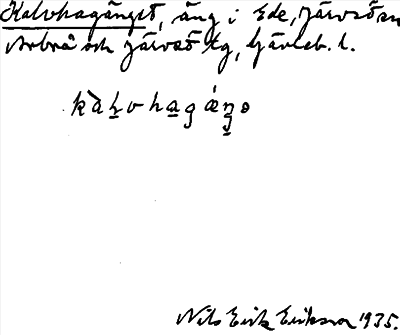 Kalvhagänget, äng i Ede, Järvsö sn
Arbrå och Järvsö tg, Gävleb. l.
Nils Erik Eriksson 1935.